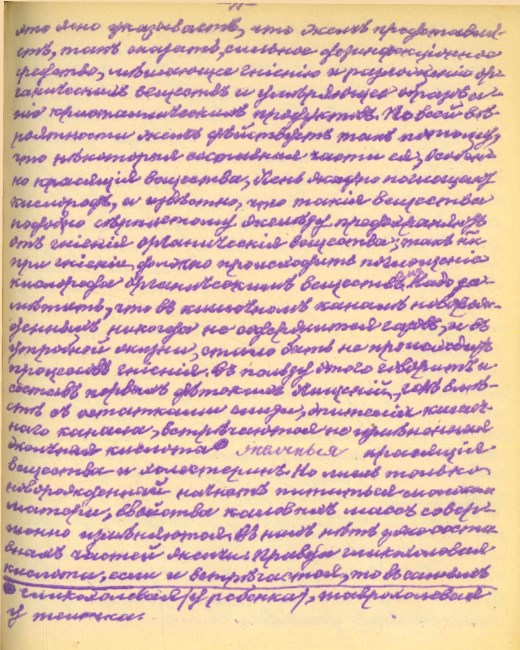 это ясно указываетъ, что желчь представля-
етъ, такъ сказать, сильное дезинфекціонное
средство, мѣшающее гніенію и разложенію ор-
ганическихъ веществъ и умѣряющее образова-
ніе кристаллическихъ продуктовъ. По всей вѣ-
роятности желчь дѣйствуетъ такъ потому,
что нѣкоторыя составныя части ея, особен-
но красящія вещества, очень жадно поглощаютъ
кислородъ, а извѣстно, что такія вещества
подобно сѣрнистому желѣзу предохраняютъ
отъ гніенія органическія вещества; такъ какъ
при гніеніи, должно происходить поглощеніе
кислорода органическимъ веществомъ. Надо за-
мѣтить, что въ кишечномъ каналѣ новорож-
денныхъ никогда не содержится газовъ, и въ
утробной жизни, стало быть не происходитъ
процессовъ гніенія. Въ пользу этого говоритъ и
составъ первыхъ дѣтскихъ испражненій, гдѣ вмѣ-
стѣ съ остатками слизи, эпителія кишеч-
наго канала, встрѣчаются неизмѣненныя
желчная кислота желчныя красящія
вещества и холестеринъ. Но лишь только
новорожденный начнетъ питаться молокомъ
матери, свойства каловыхъ массъ совер-
шенно измѣняются. Въ нихъ нѣтъ уже состав-
ныхъ частей желчи. Правда гликохолевая
кислота, если и встрѣчается, то въ самомъ
гликохолевая (у ребенка), таврохолевая
у теленка.